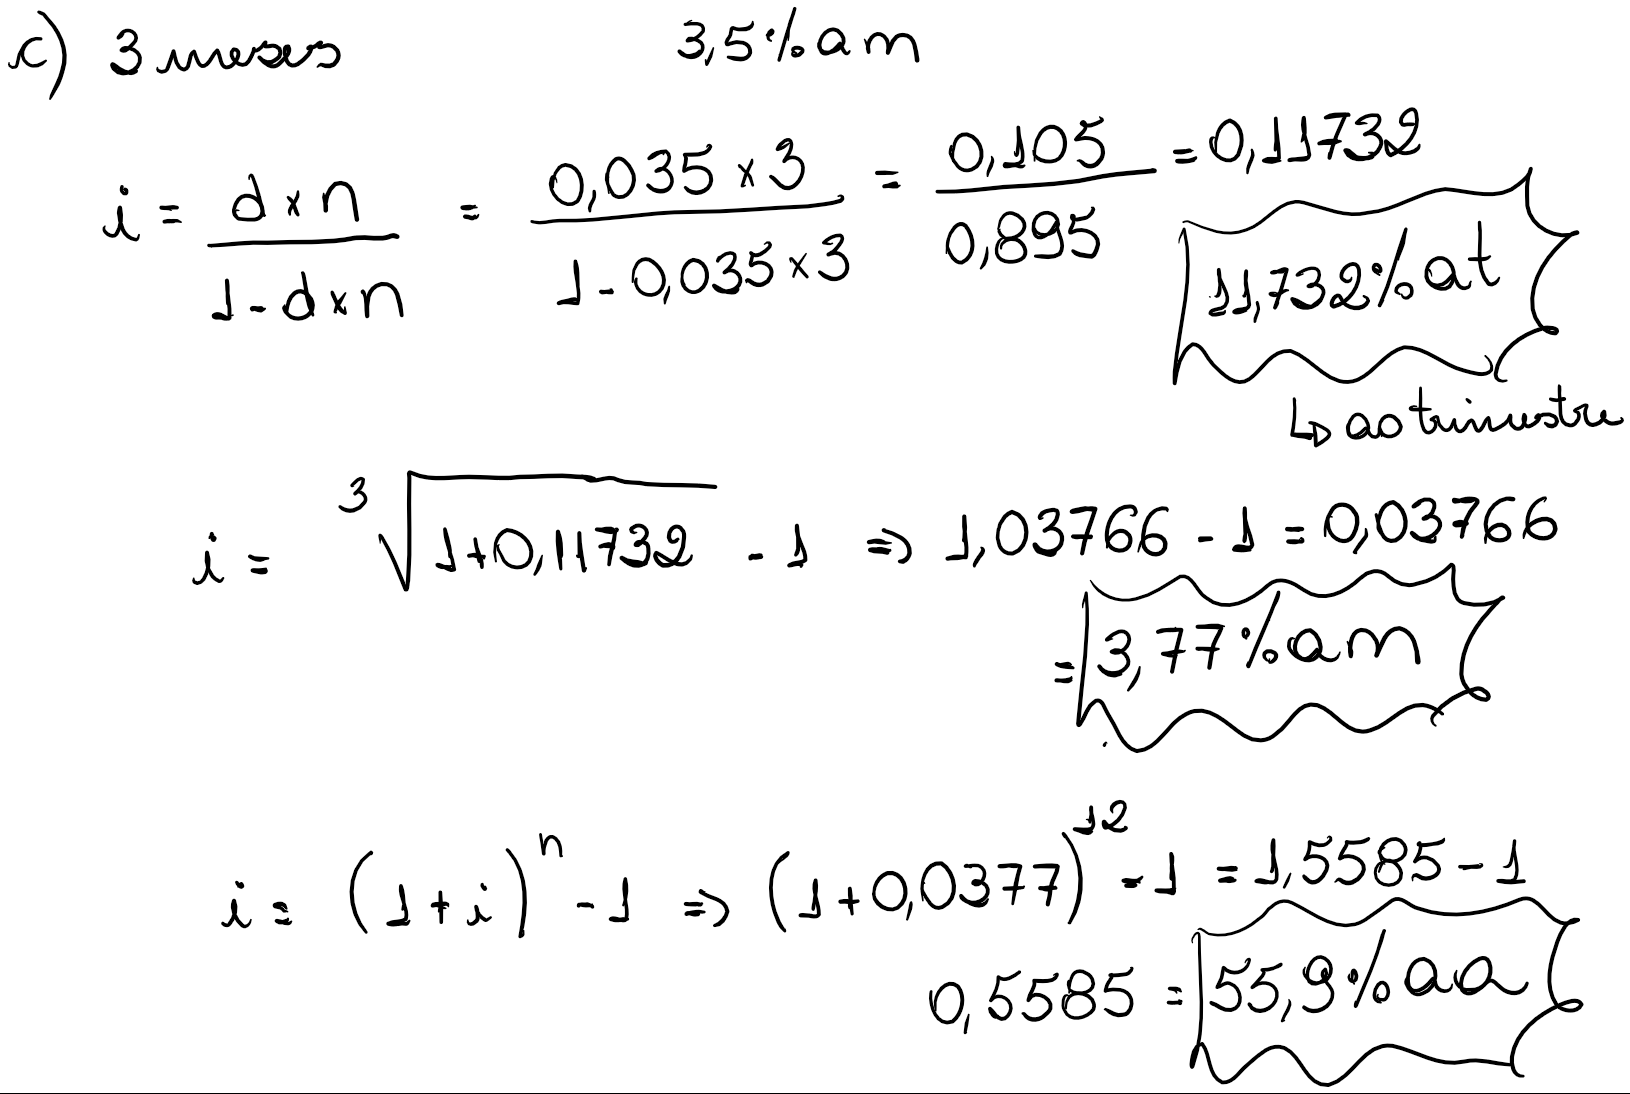 c) 3 meses 3,5% am
i = d x n / 1 - d x n = 0,035 x 3 / 1 - 0,035 x 3 = 0,105 / 0,895 = 0,11732
11,732% at
↳ ao trimestre
i = ³√1+0,11732 - 1 ⇒ 1,03766 - 1 = 0,03766
= 3,77% am
i = (1 + i)ⁿ - 1 ⇒ (1 + 0,0377)¹² - 1 = 1,5585 - 1
0,5585 = 55,9% aa